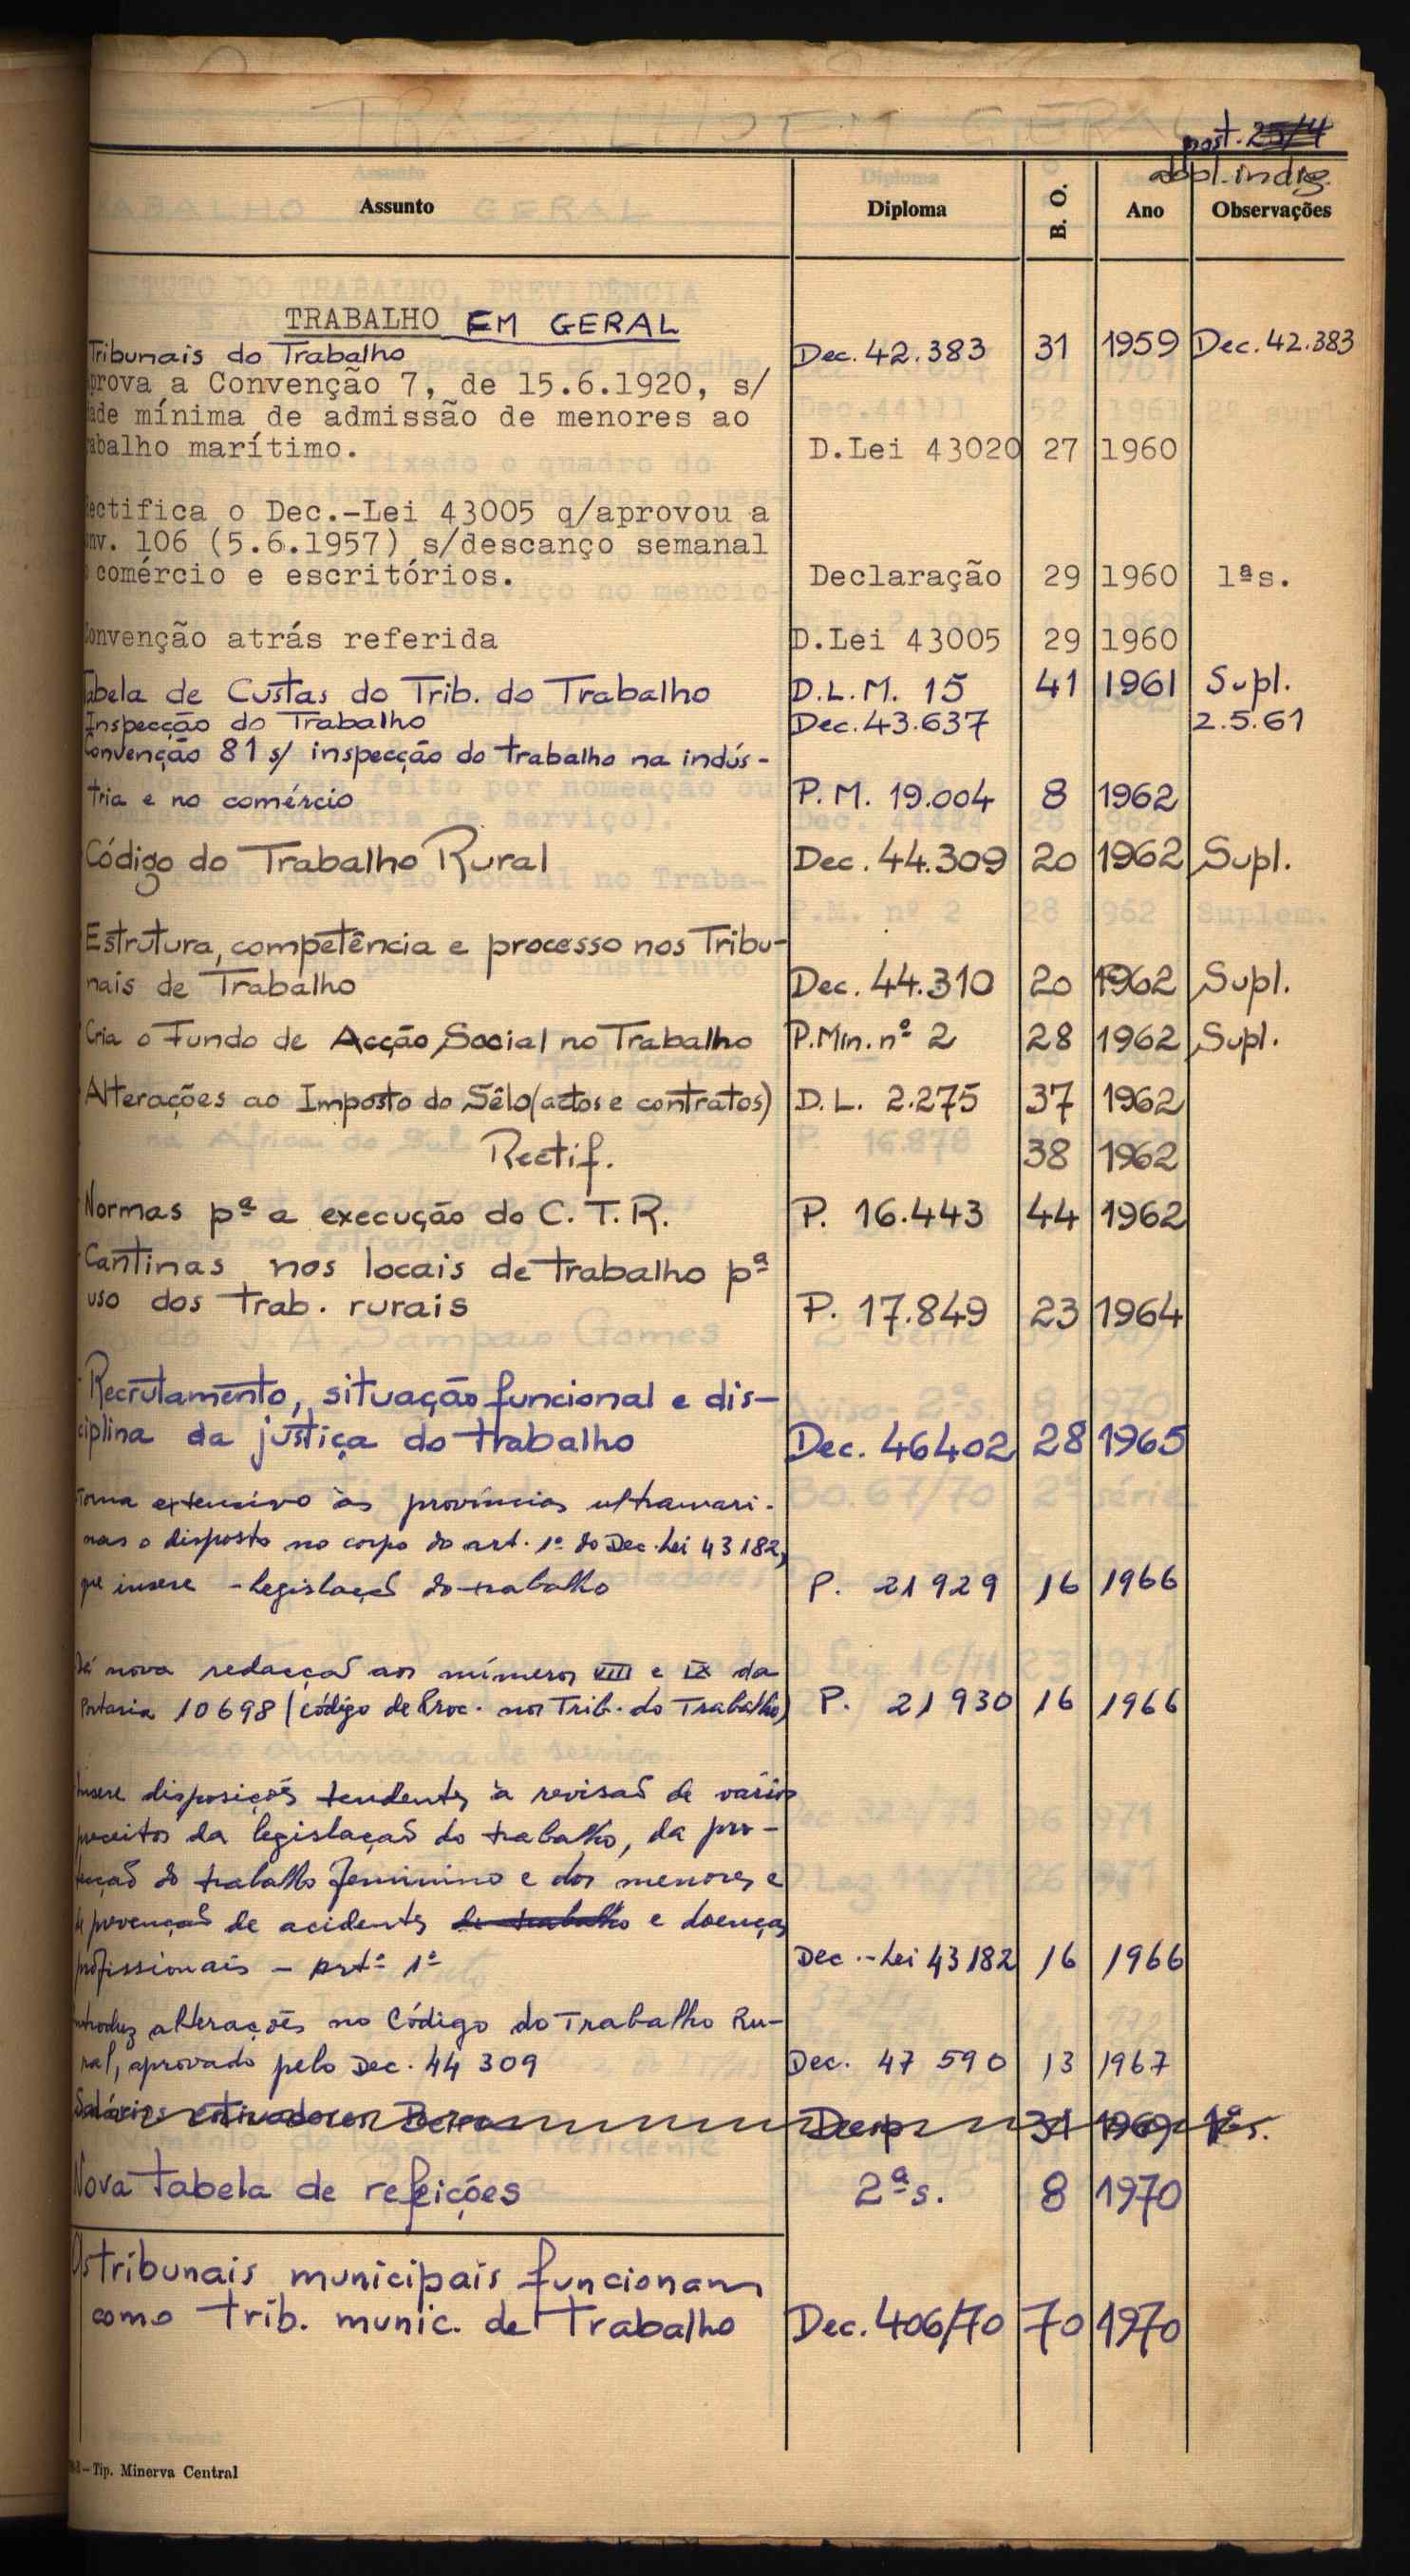 post. 25/4
Assunto Diploma B. O. Ano Observações
TRABALHO EM GERAL
Tribunais do Trabalho Dec. 42.383 31 1959 Dec. 42.383
prova a Convenção 7, de 15.6.1920, s/
ade mínima de admissão de menores ao
abalho marítimo. D.Lei 43020 27 1960
ectifica o Dec.-Lei 43005 q/aprovou a
nv. 106 (5.6.1957) s/descanço semanal
comércio e escritórios. Declaração 29 1960 1ªs.
onvenção atrás referida D.Lei 43005 29 1960
Tabela de Custas do Trib. do Trabalho D.L.M. 15 41 1961 Supl.
Inspecção do Trabalho Dec. 43.637 2.5.61
Convenção 81 s/ inspecção do trabalho na indús-
tria e no comércio P. M. 19.004 8 1962
Código do Trabalho Rural Dec. 44.309 20 1962 Supl.
Estrutura, competência e processo nos Tribu-
nais de Trabalho Dec. 44.310 20 1962 Supl.
Cria o Fundo de Acção Social no Trabalho P.Min. nº 2 28 1962 Supl.
Alterações ao Imposto do Sêlo (actos e contratos) D. L. 2.275 37 1962
Rectif. 38 1962
Normas pª a execução do C. T. R. P. 16.443 44 1962
Cantinas nos locais de trabalho pª
uso dos trab. rurais P. 17.849 23 1964
Recrutamento, situação funcional e dis-
ciplina da justiça do trabalho Dec. 46402 28 1965
Torna extensivo às províncias ultramari-
nas o disposto no corpo do art. 1º do Dec. Lei 43182,
que insere - legislação do trabalho P. 21929 16 1966
Dá nova redacção aos números VIII e IX da
Portaria 10698 (Código de Proc. nos Trib. do Trabalho) P. 21930 16 1966
Insere disposições tendentes à revisão de vários
preceitos da legislação do trabalho, da pro-
tecção do trabalho feminino e dos menores e
de prevenção de acidentes de trabalho e doenças
profissionais - artº 1º Dec.-Lei 43182 16 1966
Introduz alterações no Código do Trabalho Ru-
ral, aprovado pelo Dec. 44 309 Dec. 47 590 13 1967
Salários estivadores Beira Desp 31 1969 1ªs.
Nova tabela de refeições 2ªs. 8 1970
Os tribunais municipais funcionam
como trib. munic. de Trabalho Dec. 406/70 70 1970
- Tip. Minerva Central